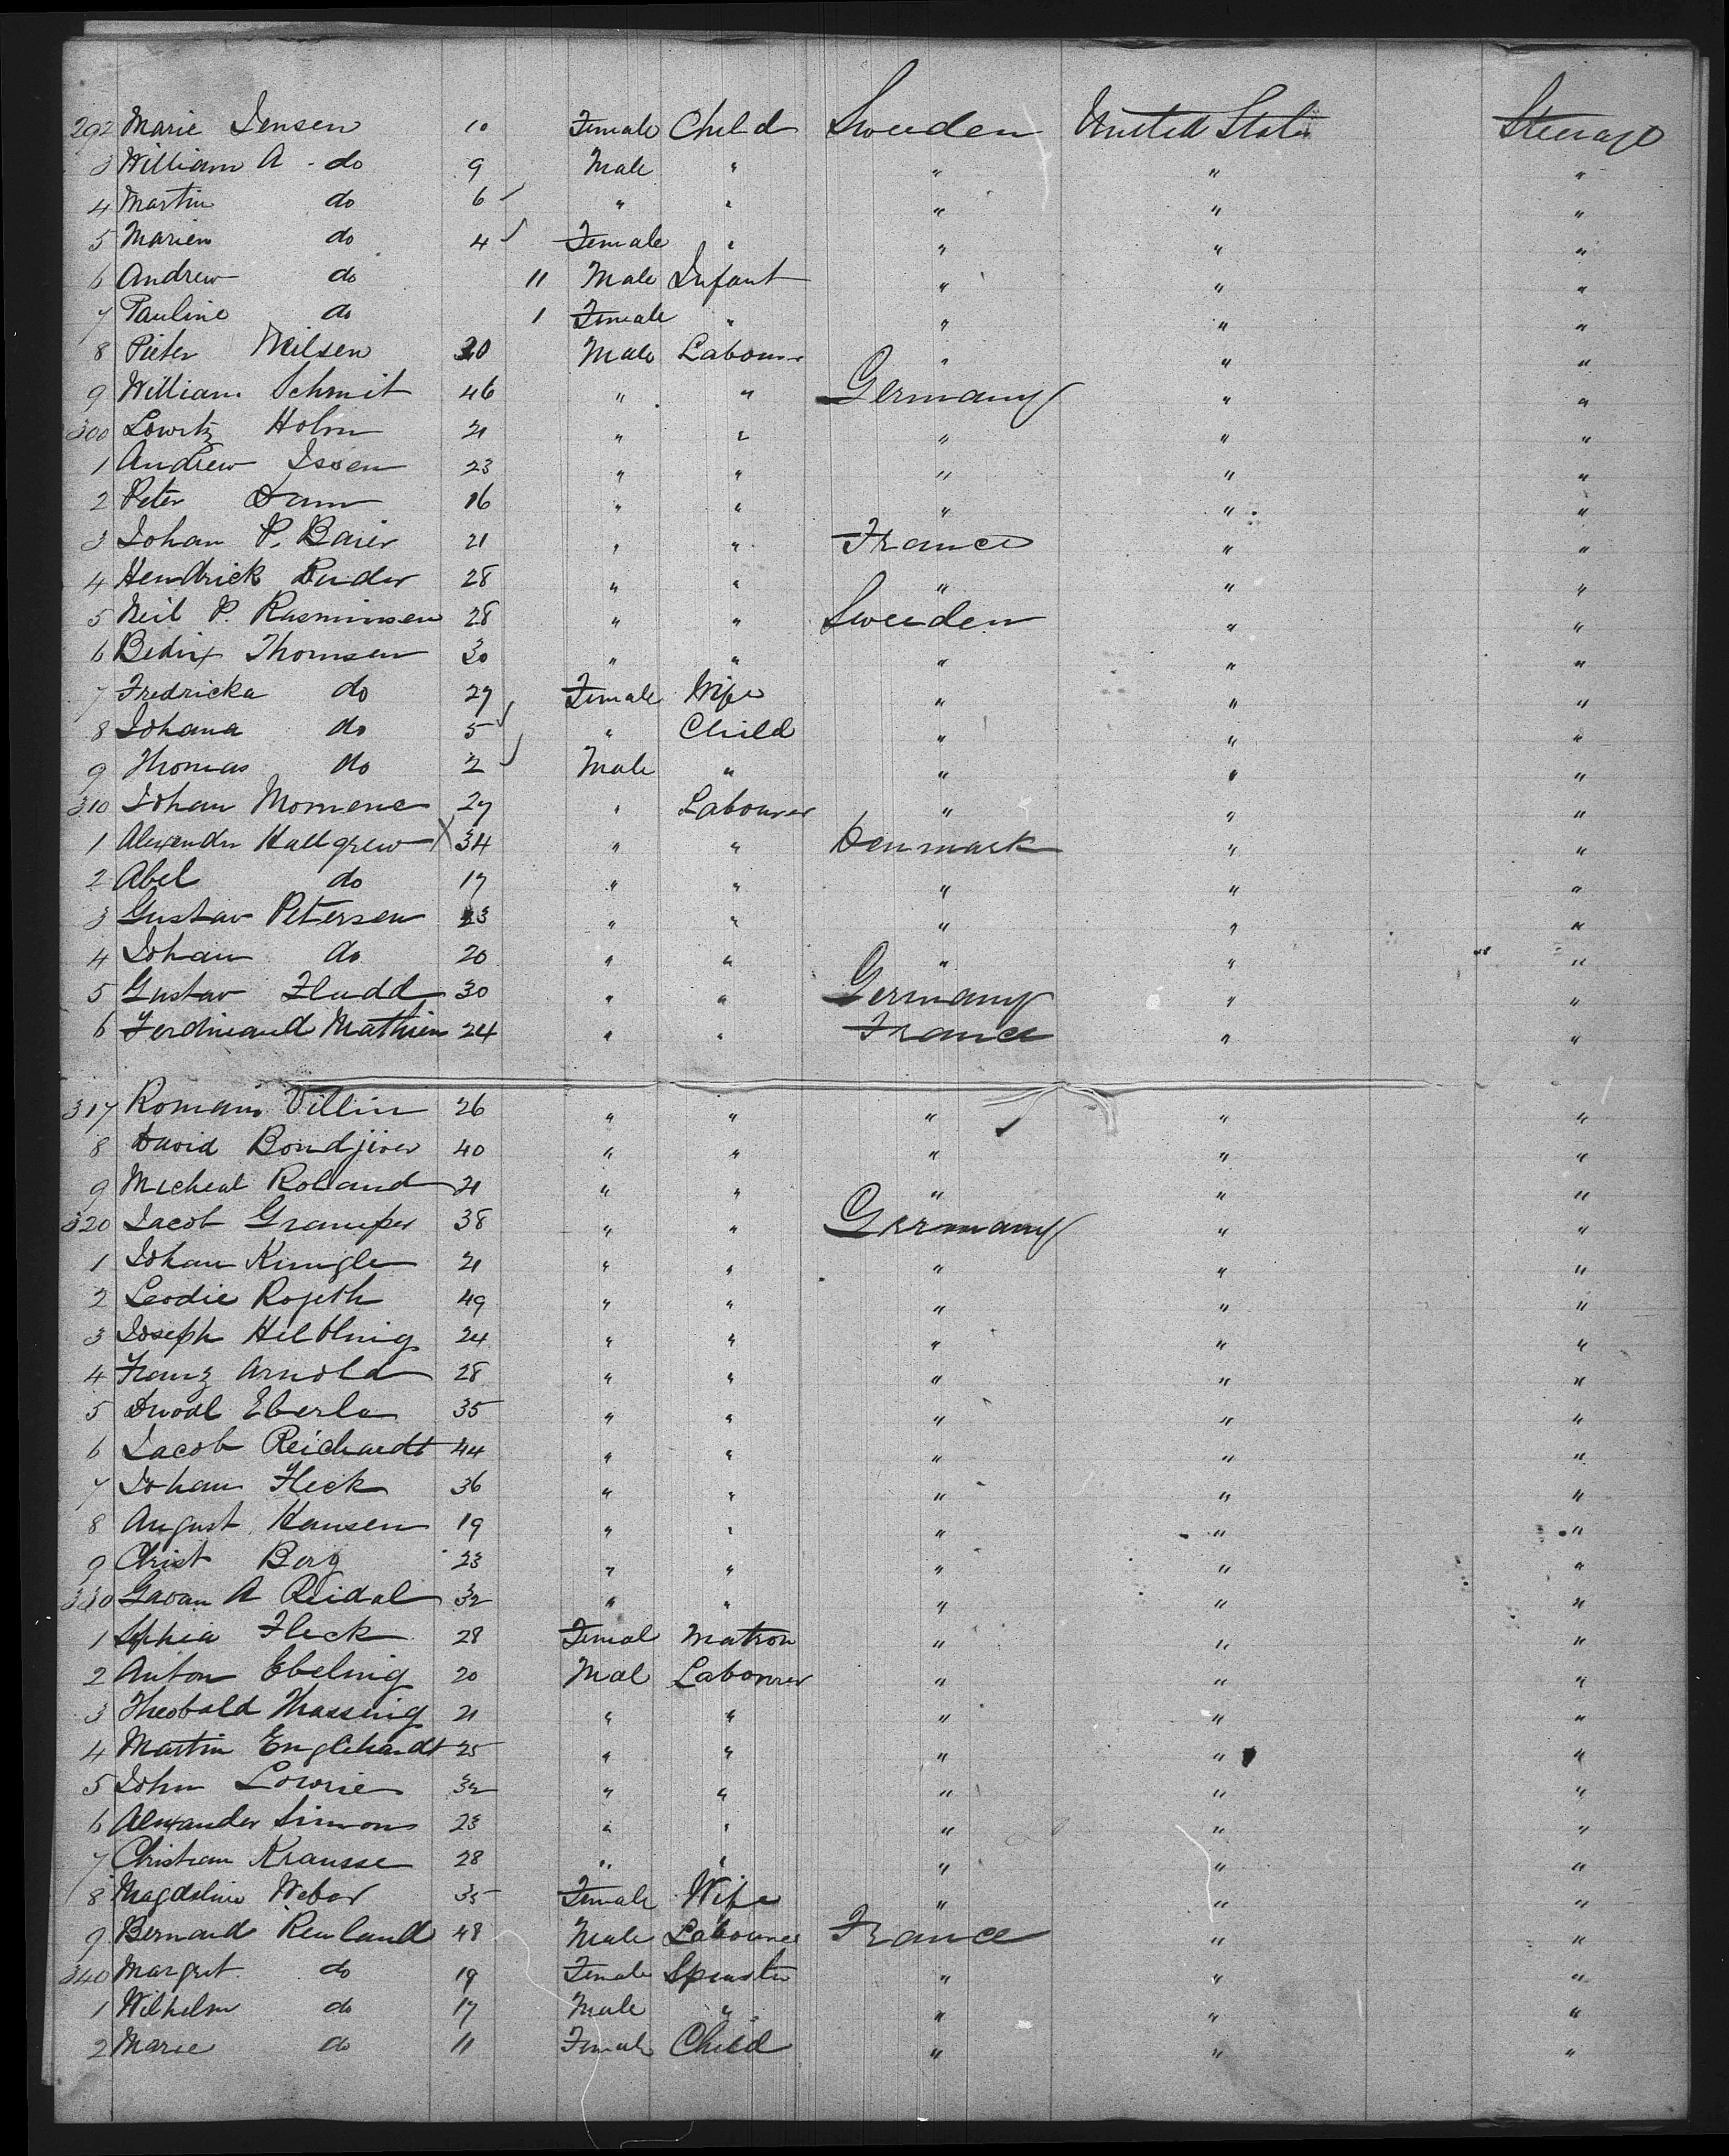 292 Marie Jensen 10 Female Child Sweden United States Steerage
3 William A. do 9 Male " " " "
4 Martin do 6 " " " " "
5 Marien do 4 Female " " " "
6 Andrew do 11 Male Infant " " "
7 Pauline do 1 Female " " " "
8 Pieter Neilsen 30 Male Labourer " " "
9 William Schmit 46 " " Germany " "
300 Lowitz Holm 21 " " " " "
1 Andrew Issen 23 " " " " "
2 Peter Dam 16 " " " " "
3 Johan P. Baier 21 " " France " "
4 Hendrick Ruder 28 " " " " "
5 Neil P. Rasminsen 28 " " Sweeden " "
6 Bedix Thomsen 30 " " " " "
7 Fredricka do 27 Female Wife " " "
8 Johana do 5 " Child " " "
9 Thomas do 2 Male " " " "
310 Johan Momene 27 " Labourer " " "
1 Alexander Hallgrew X 34 " " Denmark " "
2 Abel do 17 " " " " "
3 Gustav Petersen 23 " " " " "
4 Johan do 20 " " " " "
5 Gustav Fludd 30 " " Germany " "
6 Ferdinand Mathien 24 " " France " "
317 Romain Villin 26 " " " " "
8 David Bondjiver 40 " " " " "
9 Micheal Roland 21 " " " " "
320 Jacob Gramper 38 " " Germany " "
1 Johan Kungle 21 " " " " "
2 Leodie Rojeth 49 " " " " "
3 Joseph Helbling 24 " " " " "
4 Franz Arnold 28 " " " " "
5 Eberle 35 " " " " "
6 Jacob Reichardt 44 " " " " "
7 Johan Fleck 36 " " " " "
8 August Hansen 19 " " " " "
9 Christ Berg 23 " " " " "
330 A Reidal 32 " " " " "
1 Sphia Fleck 28 Femal Matron " " "
2 Anton Ebeling 20 Mal Labourer " " "
3 Theobald Massing 21 " " " " "
4 Martin Englehardt 25 " " " " "
5 John Lowrie 32 " " " " "
6 Alexander Simons 23 " " " " "
7 Christian Krausse 28 " " " " "
8 Magdaline Weber 35 Female Wife " " "
9 Bernard Reuland 48 Male Labourer France " "
340 Margret do 19 Female Spinster " " "
1 Wilhelm do 17 Male " " " "
2 Marie do 11 Female Child " " "